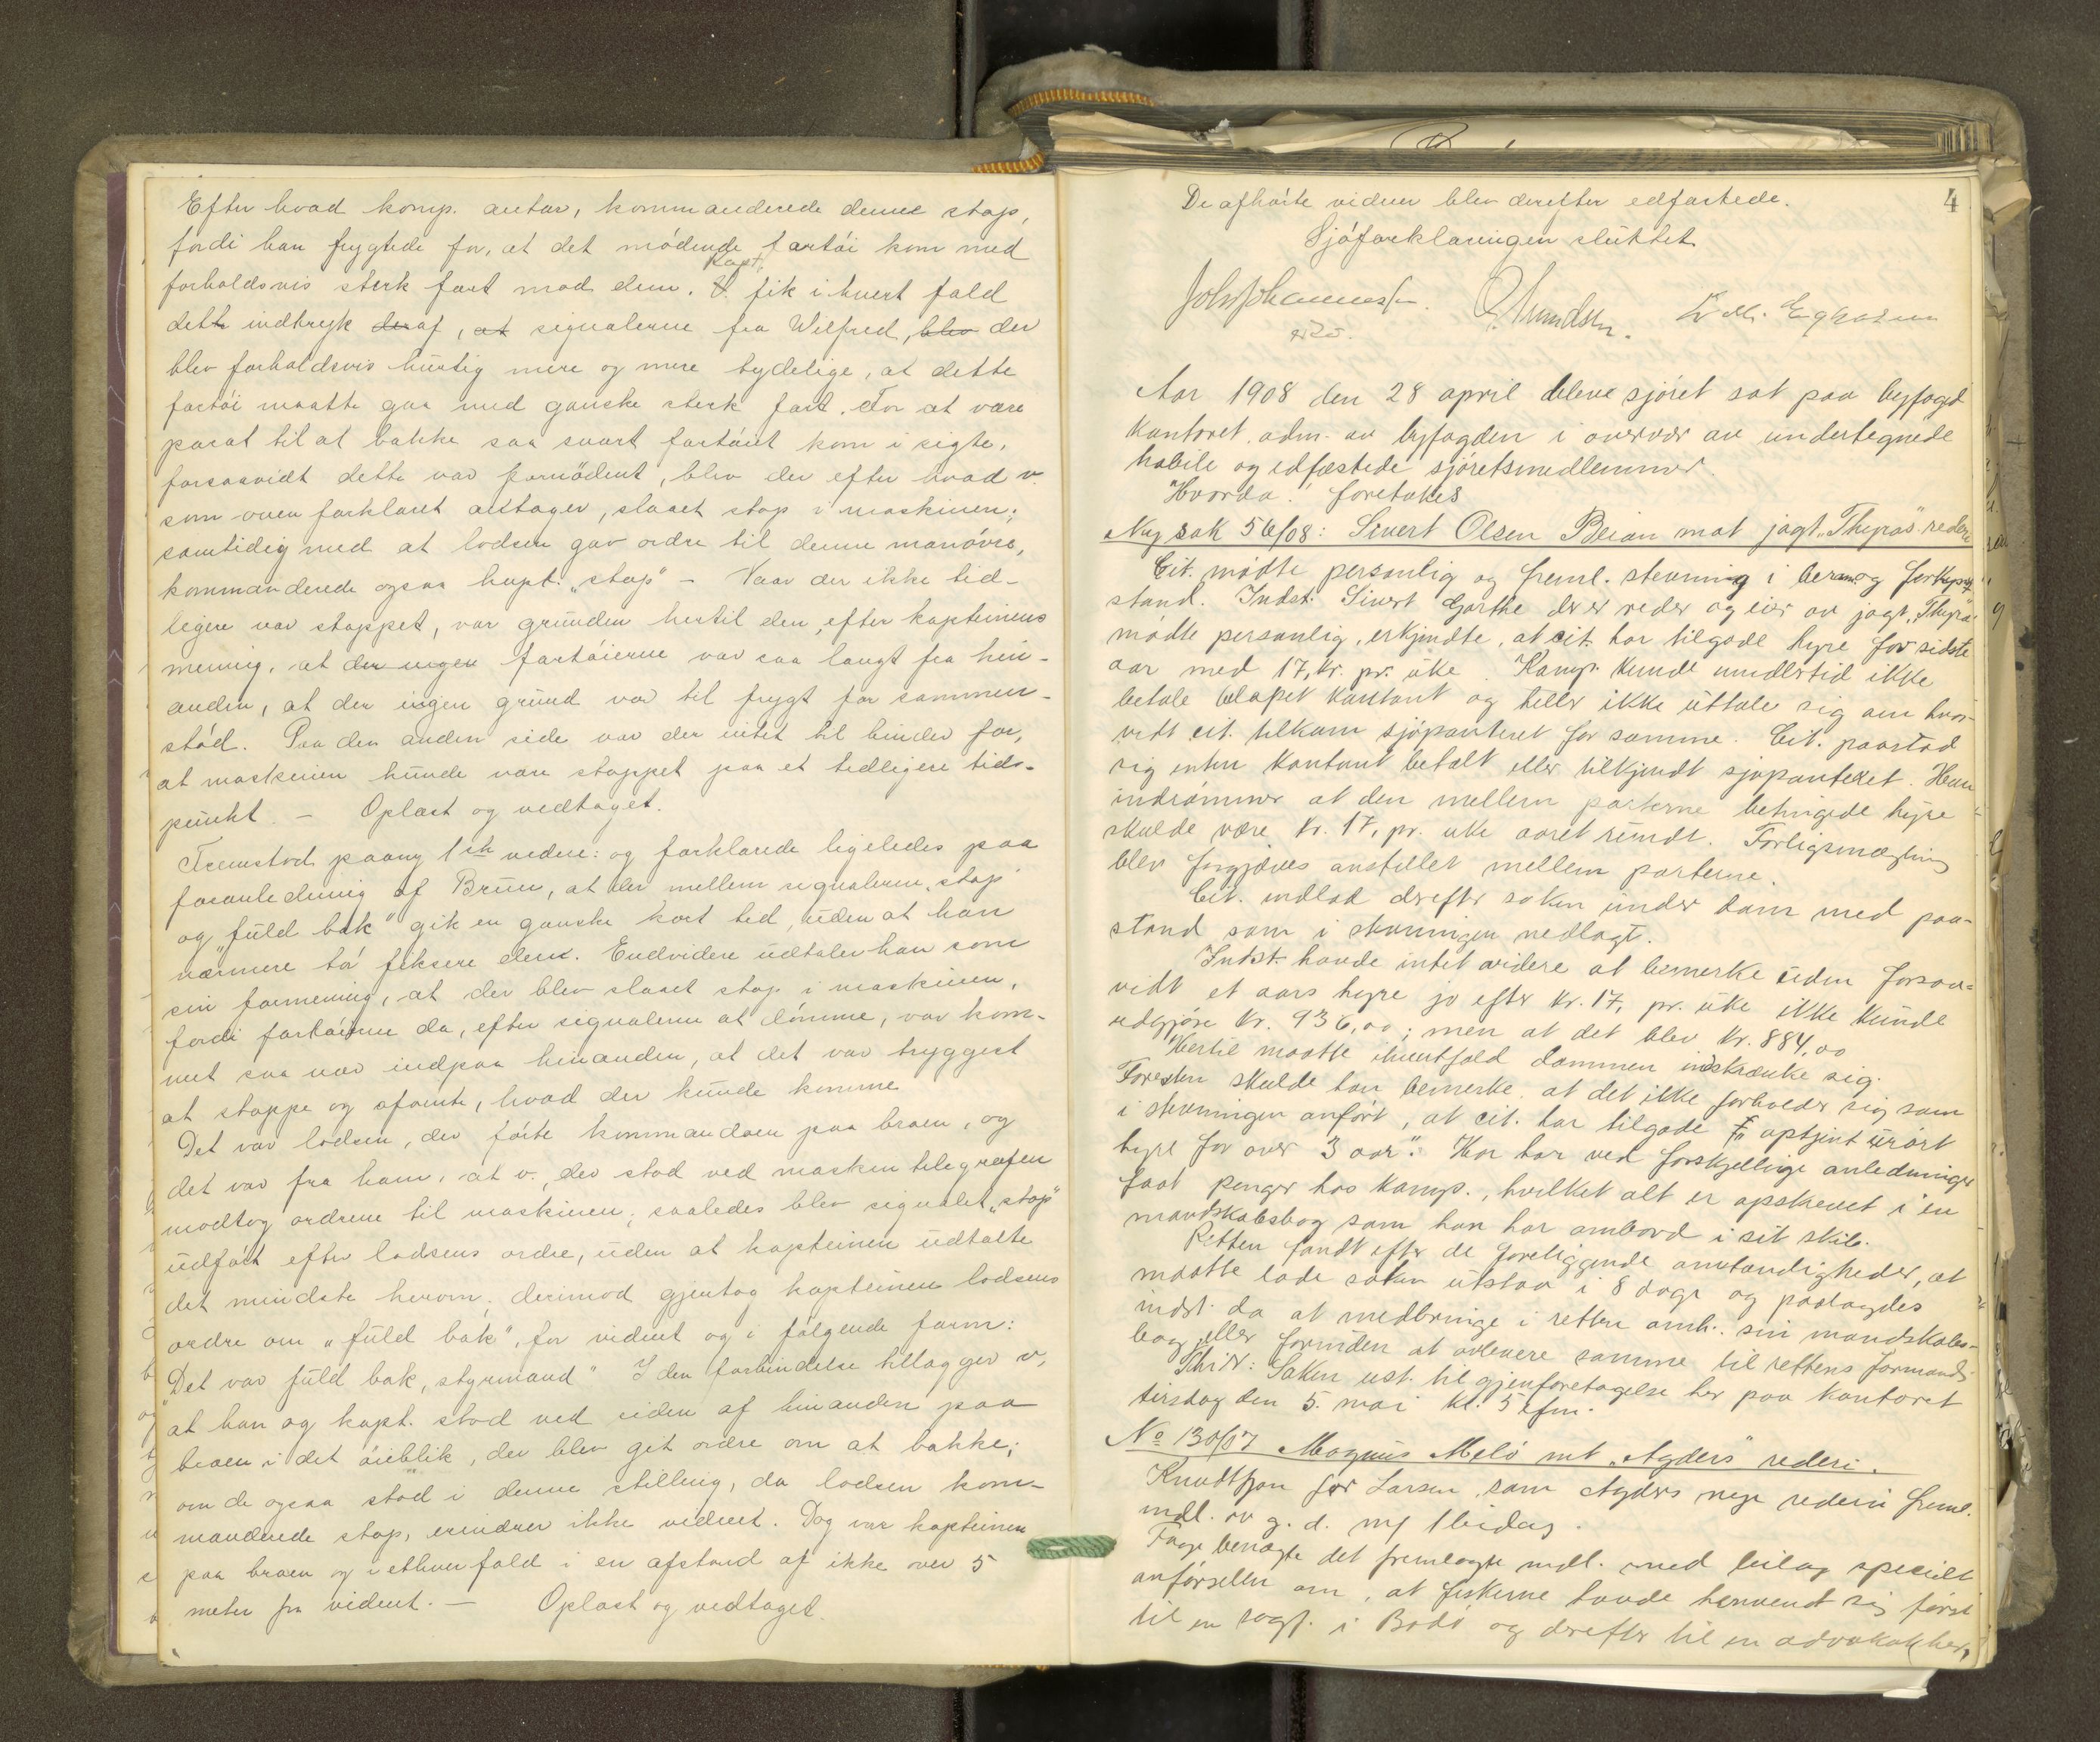 Efter hvad komp. antar, kommanderede denne stop,
fordi han frygtede for, at det mødende fartøi kom med
Kapt.
forholdsvis sterk fart mod dem. V. fik i hvert fald
dette indtryk deraf, at signalerne fra Wilfred, blev der
blev forholdsvis hurtig mere og mere tydelige, at dette
fartøi maatte gaa med ganske sterk fart. For at være
parat til at bakke saa snart fartøiet kom i sigte,
forsaavidt dette var fornødent, blev der efter hvad v.
som oven forklaret antager, slaaet stop i maskinen;
samtidig med at lodsen gav ordre til denne manøvre,
kommanderede ogsaa kapt. „stop“ – Naar der ikke tid-
ligere var stoppet, var grunden hertil den, efter kapteinens
mening, at der ingen fartøierne var saa langt fra hin-
anden, at der ingen grund var til frygt for sammen-
stød. Paa den anden side var der intet til hinder for,
at maskinen kunde være stoppet paa et tidligere tids-
punkt. – Oplæst og vedtaget.
Fremstod paany 1ste vidne: og forklarede ligeledes paa
foranledning af Brun, at der mellem signalerne „stop“
og „fuld bak“ gik en ganske kort tid, uden at han
nærmere tør fiksere den. Endvidere udtaler han som
sin formening, at der blev slaaet stop i maskinen,
fordi fartøierne da, efter signalerne at dømme, var kom-
met saa nær indpaa hinanden, at det var tryggest
at stoppe og afvente, hvad der kunde komme
Det var lodsen, der førte kommandoen paa broen, og
det var fra ham, at v. der stod ved maskintelegrafen
modtog ordrene til maskinen; saaledes blev signalet „stop“
udført efter lodsens ordre, uden at kapteinen udtalte
det mindste herom; derimod gjentog kapteinen lodsens
ordre om „fuld bak“, for vidnet og i følgende form:
„Det var fuld bak, styrmand“ I den forbindelse tillægger v,
at han og kapt. stod ved siden af hinanden paa
broen i det øieblik, der blev git ordre om at bakke;
om de ogsaa stod i denne stilling, da lodsen kom-
manderede stop, erindrer ikke vidnet. Dog var kapteinen
paa broen og i ethvert fald i en afstand af ikke over 5
meter fra vidnet. – Oplæst og vedtaget.
4
De afhørte vidner blev derefter edfæstede.
Sjøforklaringen sluttet
Joh. Johannessen.
Aar 1908 den 28 april bleve sjøret sat paa byfogd
kontoret, adm. av byfogden i overvær av undertegnede
habile og edfæstede sjøretsmedlemmer.
Hvorda! foretakes
Ny sak 56/08: Sivert Olsen Beian mot jagt „Thyras“ rederi
Cit. møtte personlig og freml. stevning i beram. og forkynt
stand. Indst. Sivert Garthe der er reder og eier av jagt „Thyra“
møtte personlig, erkjendte, at cit. har tilgode hyre for sidste
aar med 17, kr. pr. uke. Komp. kunde imidlertid ikke
betale beløpet kontant og heller ikke uttale sig om hvor-
vidt cit. tilkom sjøpanteret for samme. Cit. paastod
sig enten kontant betalt eller tilkjendt sjøpanteret. Han
indrømmer at den mellem parterne betingede hyre
skulde være kr. 17, pr. uke aaret rundt. Forligsmægling
blev forgjæves anstillet mellem parterne.
Cit. indlod derefter saken under dom med paa-
stand som i stevningen nedlagt.
Indst. havde intet videre at bemerke uden forsaa-
vidt et aars hyre jo efter kr. 17, pr. uke ikke kunde
utgjøre kr. 936,00; men at det blev kr. 884,00
Hertil maatte ihvertfald dommen indskrænke sig.
Foresten skulde han bemerke, at det ikke forholder sig som
i stevningen anført, at cit. har tilgode „optjent urørt
hyre for over 3 aar“. Han har ved forskjellige anledninger
faat penger hos komp., hvilket alt er opskrevet i en
mandskabsbog som han har ombord i sit skib.
Retten fandt efter de foreliggende omstændigheder, at
maatte lade saken utstaa i 8 dage og paalagdes
indst. da at medbringe i retten omh. sin mandskabs-
bog, eller forinden at avlevere samme til rettens formand.
Thi: Saken ust. til gjenforetagelse her paa kontoret
tirsdag den 5. mai kl. 5 efm.
No 130/07 Magnus Melø mt „Agders“ rederi.
Knudtzon for Larsen, som Agders nye rederi freml.
indl. av g. d. m/ 1 bidag.
Faye benægte det fremlagte indl. med bilag specielt
anførselen om, at fiskerne havde henvendt sig først
til en sagf. i Bodø og derefter til en advokat (her,